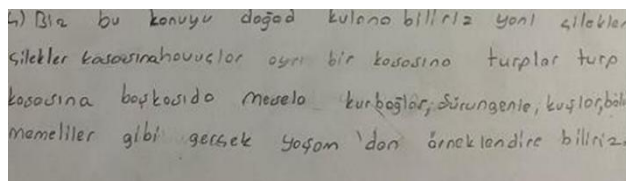 4) Biz bu konuyu doğad kulana biliriz yani çilekler
çilekler kasasına havuçlar ayrı bir kasasına turplar turp
kasasına başkasıda mesela kurbağlar, Sürüngenle, kuşlar, balı
memeliler gibi gerçek yaşam 'dan örneklendire biliriz.